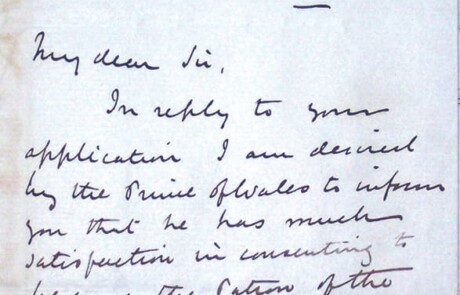 My dear Sir,
In reply to your
application I am desired
by the Prince of Wales to inform
you that he has much
satisfaction in consenting to
the Patron of the